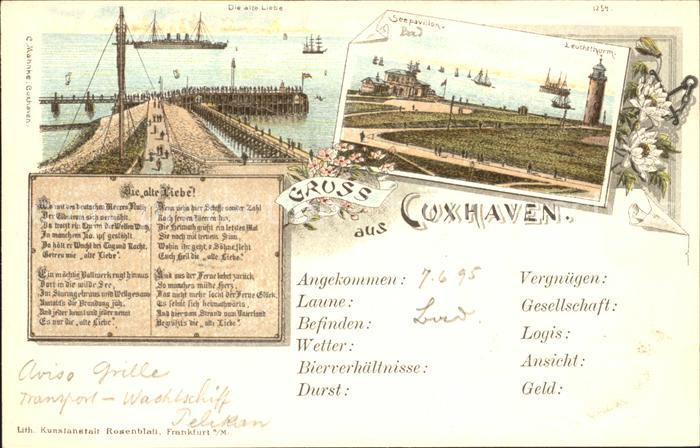 Die alte Liebe
1254.
C. Mannke, Cuxhaven.
Seepavillon.
Bad
Leuchtthurm.
Die „alte Liebe“!
Wo mit des deutschen Meeres Fluth
Der Elbstrom sich vermählt,
Da trotzt ein Thurm der Wellen Wuth,
In manchem Sturm gestählt.
Da hält er Wacht bei Tag und Nacht,
Getreu wie „alte Liebe“.
Ein mächtig Bollwerk ragt hinaus
Dort in die wilde See,
Im Sturmgebraus und Wellgesaus
Und jeder kennt und jeder nennt
Es nur die „alte Liebe“.
Wenn zieh'n hier Schiffe sonder Zahl
Nach fernen Meeren hin,
Die Heimath grüßt ein letztes Mal
Sie noch mit treuem Sinn,
Wohin ihr geht, o Söhne, seht
Euch Heil die „alte Liebe“.
Und aus der Ferne kehrt zurück
So manches müde Herz,
Das nicht mehr lockt der Ferne Glück,
Es sehnt sich heimathwärts,
Und hier vom Strand vom Vaterland
Begrüßt's die „alte Liebe“.
GRUSS
aus
CUXHAVEN.
Angekommen: 7.6 95
Laune:
Befinden: Bad.
Wetter:
Bierverhältnisse:
Durst:
Vergnügen:
Gesellschaft:
Logis:
Ansicht:
Geld:
Aviso Grille
Transport - Wachtschiff
Pelikan
Lith. Kunstanstalt Rosenblatt, Frankfurt a/M.